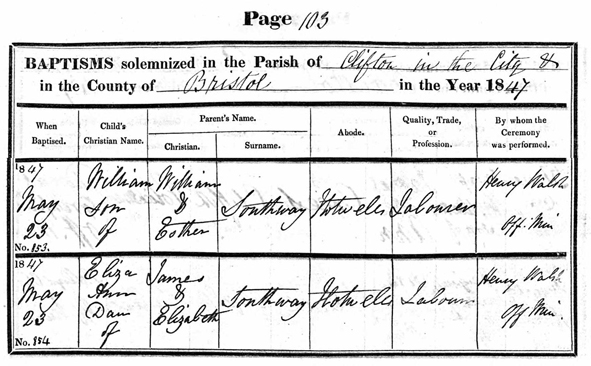 Page 103
BAPTISMS solemnized in the Parish of Clifton in the City &
in the County of Bristol in the Year 1847
When Baptised. Child's Christian Name. Parent's Name. Christian. Surname. Abode. Quality, Trade, or Profession. By whom the Ceremony was performed.
1847 William William Henry Walsh
May son & Southway Hotwells Labourer
23 of Esther Off: Min
No. 853.
1847 Eliza James Henry Walsh
May Ann & Southway Hotwells Labourer
23 Daur Elizabeth Off Min.
of
No. 854